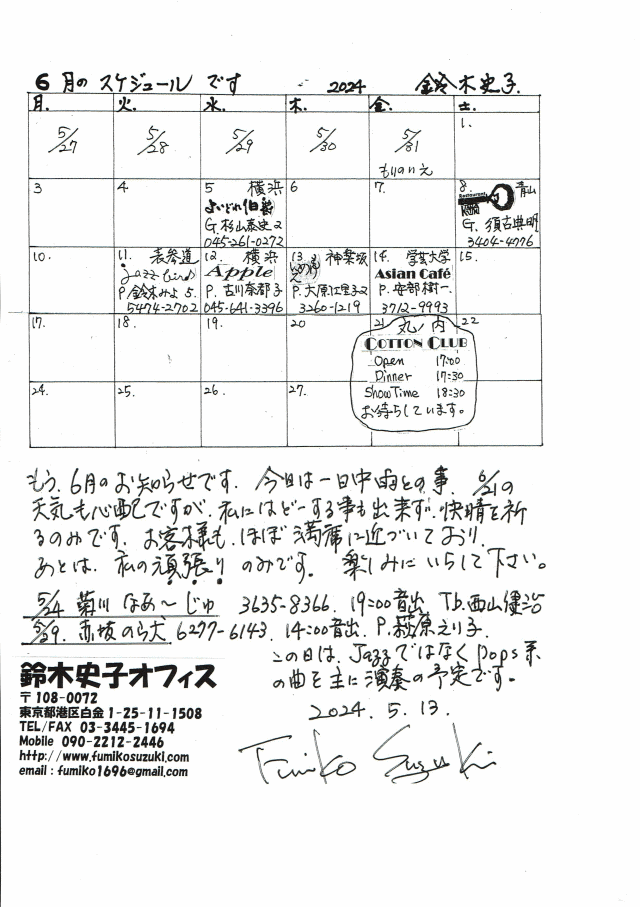 6月のスケジュール です 2024 鈴木史子
月. 火. 水. 木. 金. 土.
5/27 5/28 5/29 5/30 5/31 1.
もりのいえ
3 4 5 横浜 6 7. 8. 青山
よいどれ伯爵 Restaurant
G. 杉山泰史 2 G. 須古典明
045-261-0272 3404-4776
10. 11. 表参道 12. 横浜 13. 神楽坂 14. 学芸大学 15.
Jazz bird Apple Asian Café
P. 鈴木みよ 5. P. 古川奈都子 P. 大原江里子2 P. 安部樹一.
5474-2702 045-641-3396 3260-1219 3712-9993
17. 18. 19. 20 21 丸ノ内 22
COTTON CLUB
Open 17:00
Dinner 17:30
24. 25. 26. 27. ShowTime 18:30
お待ちしています。
もう、6月のお知らせです. 今日は一日中雨との事. 6/21の
天気も心配ですが、私にはどーする事も出来ず、快晴を祈
るのみです. お客様も、ほぼ満席に近づいており、
あとは、私の頑張りのみです。 楽しみにいらして下さい。
5/24 菊川 なあ〜じゅ 3635-8366. 19:00音出 Tb.西山健治
5/29. 赤坂のら犬 6277-6143. 14:00音出. P.萩原えり子.
この日は、Jazzではなくpops系
の曲を主に演奏の予定です。
2024. 5. 13.
Fumiko Suzuki
鈴木史子オフィス
〒108-0072
東京都港区白金 1-25-11-1508
TEL/FAX 03-3445-1694
Mobile 090-2212-2446
http://www.fumikosuzuki.com
email : fumiko1696@gmail.com